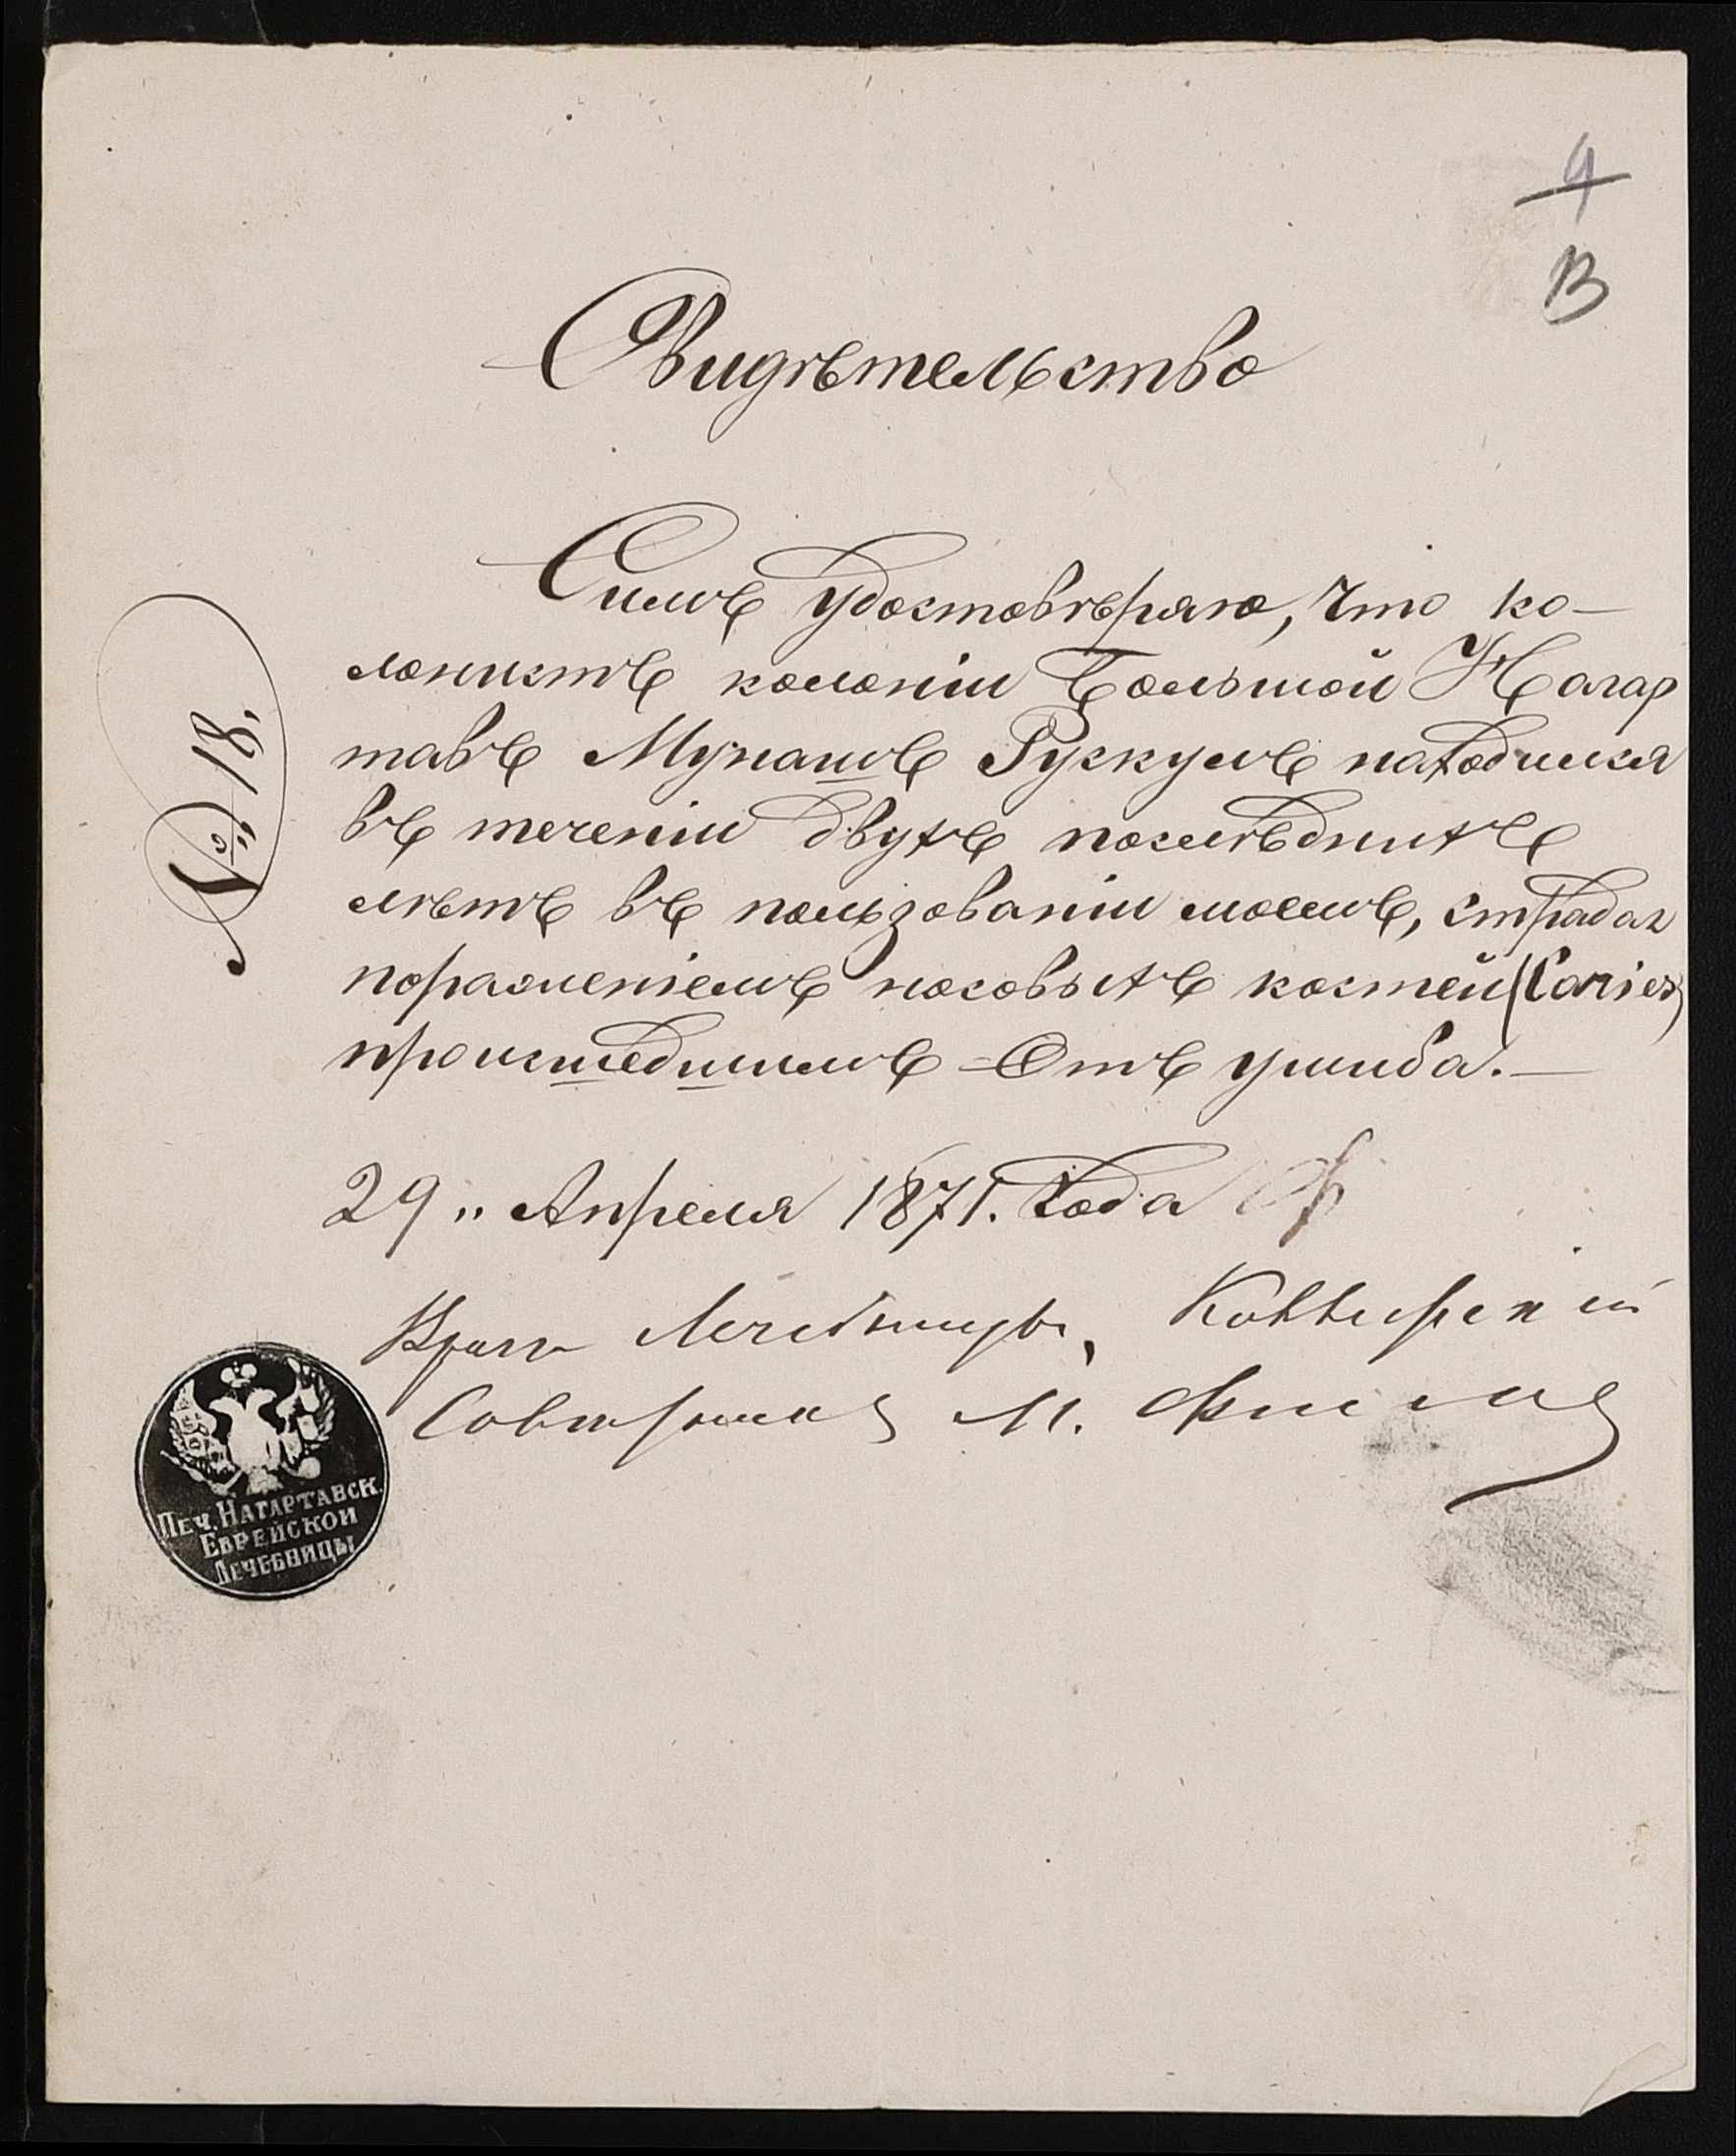 4
В
Свидѣтельство
Симъ удостовѣряю, что ко-
лонистъ колоніи Большой Нагар
тавъ Мунашъ Рускулъ находится
въ теченіи двухъ послѣднихъ
лѣтъ въ пользованіи моемъ, страдая
пораженіемъ носовыхъ костей (Caries)
происшедшимъ отъ ушиба.—
№ 18.
29 „ Апреля 1871. Года
Врачъ Лечебницы, Коллежскій
Совѣтникъ М.
Печ. Нагартавск.
Еврейской
Лечебницы